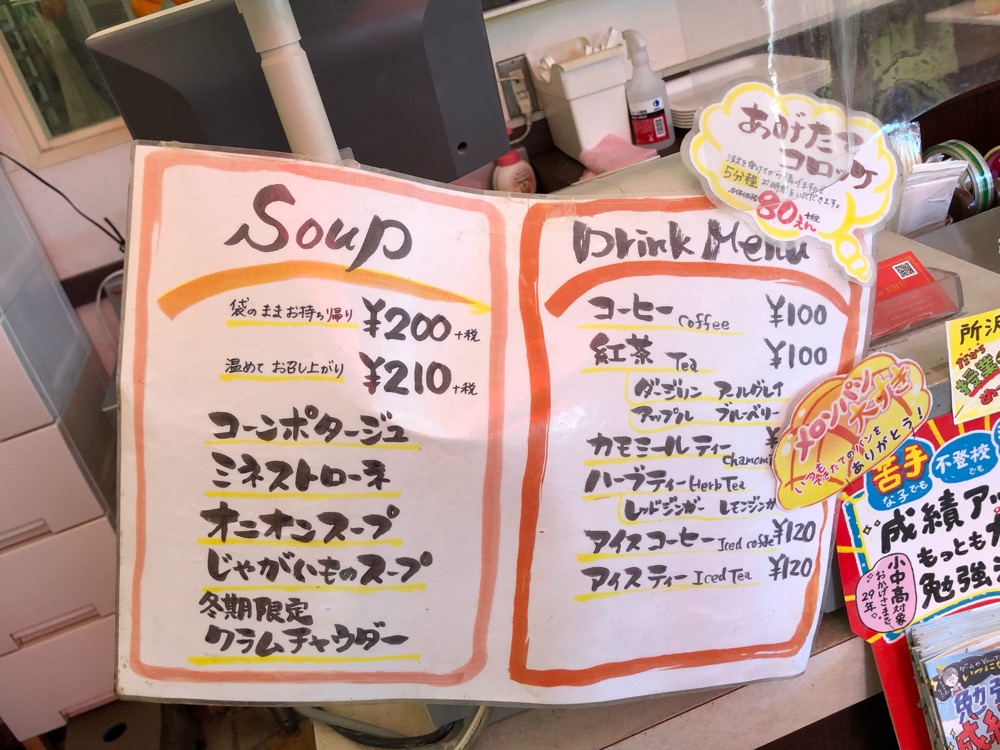 Soup
袋のままお持ち帰り ¥200+税
温めてお召し上がり ¥210+税
コーンポタージュ
ミネストローネ
オニオンスープ
じゃがいものスープ
冬期限定
クラムチャウダー
Drink Menu
コーヒー Coffee ¥100
紅茶 Tea ¥100
ダージリン アールグレイ
アップル ブルーベリー
カモミールティー Chamomi
ハーブティー Herb Tea
レッドジンジャー レモンジンガ
アイスコーヒー Iced coffe ¥120
アイスティー Iced Tea ¥120
あげたて
コロッケ
注文を受けてから揚げます。
5分程お時間をいただきます。
80えん
+税
メロンパン
大好き
いつも
できたてのパンを
ありがとう!
所沢
だから
苦手
な子でも
不登校
でも
成績アッ
もっとも
勉強
小中高対象
おかげさまで
29年